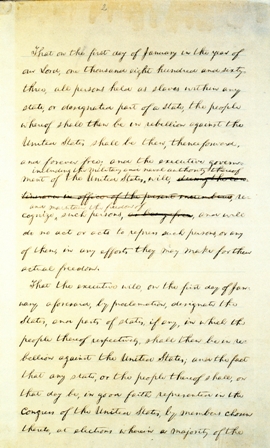 2
That on the first day of January in the year of
our Lord, one thousand eight hundred and sixty-
three, all persons held as slaves within any
state, or designated part of a state, the people
whereof shall then be in rebellion against the
United States shall be then, thenceforward,
and forever free; and the executive govern-
including the military and naval authority thereof
ment of the United States, will,
re-
and maintain the freedom of
cognize, such persons, and will
do no act or acts to repress such persons, or any
of them, in any efforts they may make for their
actual freedom.
That the executive will, on the first day of Jan-
uary aforesaid, by proclamation, designate the
States, and parts of states, if any, in which the
people thereof respectively, shall then be in re-
bellion against the United States; and the fact
that any state, or the people thereof shall, on
that day be, in good faith represented in the
Congress of the United States, by members chosen
thereto, at elections wherein a majority of the